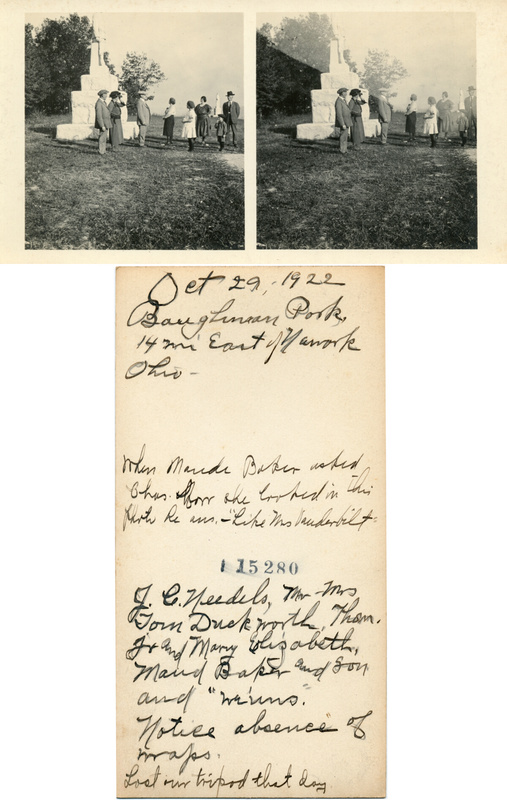 Oct 29, 1922
Baughman Park,
14 mi East of Newark
Ohio -
When Maude Baker asked
Chas. How she looked in this
Photo he ans. - "Like Mrs Vanderbilt"
115280
J. C. Needels, Mr - Mrs
Tom Duckworth, Thom.
Jr and Mary Elizabeth,
Maud Baker and Son
and "we'uns."
Notice absence of
wraps.
Lost our tripod that day